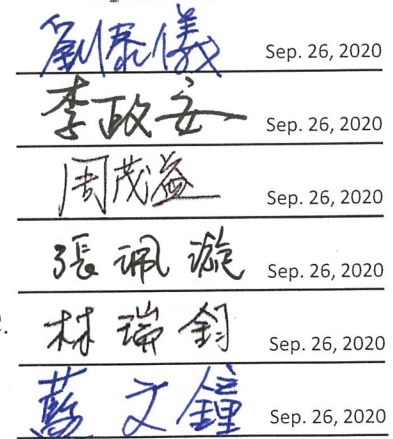 劉泰儀 Sep. 26, 2020
李政安 Sep. 26, 2020
周茂益 Sep. 26, 2020
張珮漩 Sep. 26, 2020
林瑞鈞 Sep. 26, 2020
蘇文鐘 Sep. 26, 2020